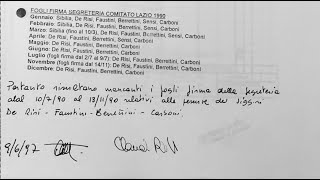 FOGLI FIRMA SEGRETERIA COMITATO LAZIO 1990
Gennaio: Sibilia, De Risi, Faustini, Berrettini, Sensi, Carboni
Febbraio: Sibilia, De Risi, Faustini, Berrettini, Sensi, Carboni
Marzo: Sibilia (fino al 10/3), De Risi, Faustini, Berrettini, Sensi, Carboni
Aprile: De Risi, Faustini, Berrettini, Sensi, Carboni
Maggio: De Risi, Faustini, Berrettini, Carboni
Giugno: De Risi, Faustini, Berrettini, Carboni
Luglio (fogli firma dal 2/7 al 9/7): De Risi, Faustini, Berrettini, Carboni
Novembre (fogli firma dal 14/11): De Risi, Faustini, Berrettini, Carboni
Dicembre: De Risi, Faustini, Berrettini, Carboni
Pertanto risultano mancanti i fogli firma della segreteria
dal 10/7/90 al 13/11/90 relativi alle persone dei sigg.ri
De Risi - Faustini - Berrettini - Carboni
9/6/97